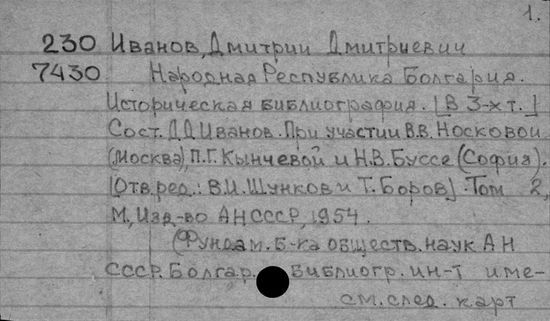 1.
230 Иванов, Дмитрий Дмитриевич
7430 Народная Республика Болгария.
Историческая библиография. [В 3-х т.]
Сост. Д.Д. Иванов. При участии В.В. Носковой
(Москва), П.Г. Кынчевой и Н.В. Буссе (София).
[Отв. ред.: В.И. Шунков и Т. Боров]. Том 2,
М, Изд-во АН СССР, 1954.
(Фундам. б-ка обществ. наук АН
СССР. Болгар. библиогр. ин-т име-
см. след. карт